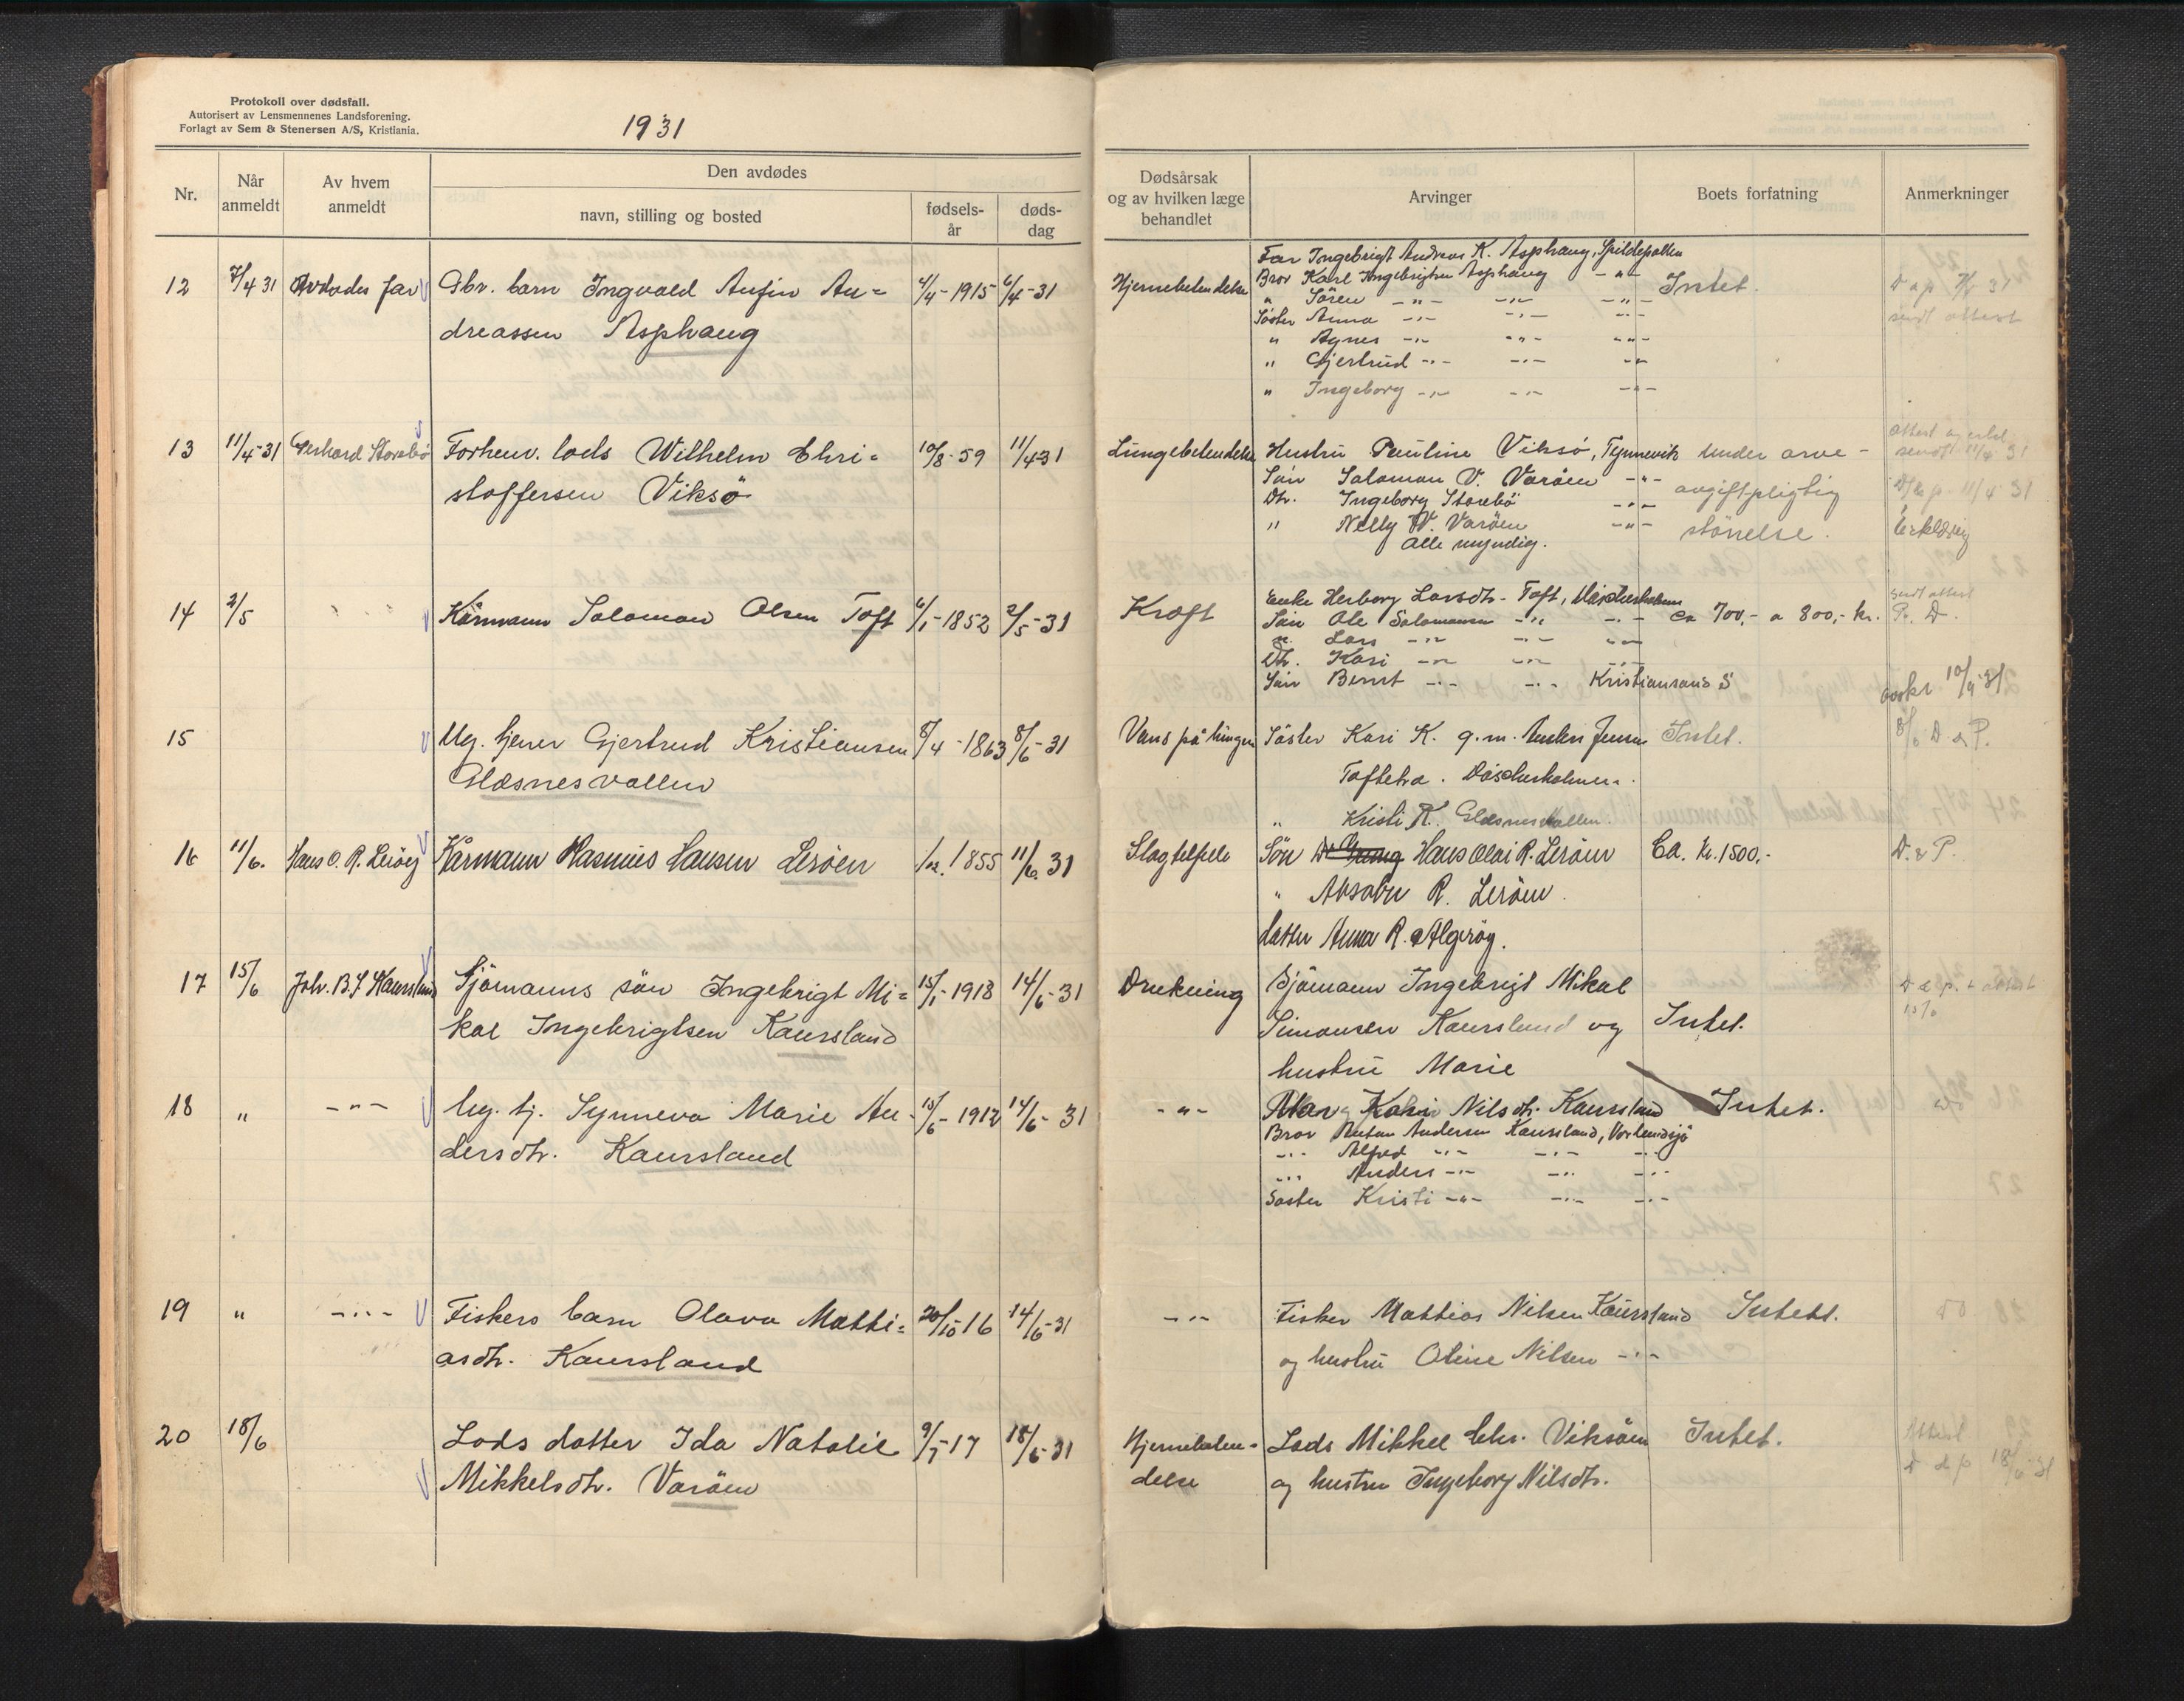 Protokoll over dødsfall.
Autorisert av Lensmennenes Landsforening.
Forlagt av Sem & Stenersen A/S, Kristiania.
1931
Nr.
Når anmeldt
Av hvem anmeldt
Den avdødes
navn, stilling og bosted
fødsels-år
døds-dag
Dødsårsak og av hvilken læge behandlet
Arvinger
Boets forfatning
Anmerkninger
12 7/4 31 Avdødes far Gbr. barn Ingvald Anfin An= 4/4-1915 6/4-31
dreassen Asphaug
Hjernebetendelse
Far Ingebrigt Andreas K. Asphaug, Spildepollen
Bror Karl Ingebrigtsen Asphaug -"-
" Sören -"- -"- -"-
Söster Anna -"- -"- -"-
" Agnes -"- -"- -"-
" Gjertrud -"- -"- -"-
" Ingeborg -"- -"- -"-
Intet.
sendt attest
13 11/4-31 Gerhard Storebö Forhenv. lods Wilhelm Chri= 10/8-59 11/4 31
stoffersen Viksö
Lungebetendelse
Hustru Pauline Viksö, Tynnevik
Sön Salomon V. Varöen -"-
Dtr. Ingeborg Storebö -"-
" Nelly W. Varöen -"-
Alle myndig.
under arve-
avgiftpligtig
störrelse.
Attest og
sendt 11/4 31
11/4 31
Erklæring
14 2/5 Kårmann Salomon Olsen Toft 6/1-1852 2/5-31
Kræft
Enke Herborg Larsdtr. Toft,
Sön Ole Salomonsen -"- -"-
" Lars -"- -"- -"-
Dtr. Kari -"- -"- -"-
Sön Bernt -"- -"- Kristiansand S
ca 700,- a 800,- kr.
sendt attest
P. D.
10/9-31
15 Ug. tjener Gjertrud Kristiansen 8/4-1863 8/6-31
Glæsnesvallen
Vans på lungen
Söster Kari K. g.m. Anders Jensen
Toftetræ.
" Kristi K. Glæsnesvallen.
Intet.
8/6 D & P.
16 11/6. Hans O. R. Leröy Kårmann Rasmus Hansen Leröen 1/12. 1855 11/6. 31
Slagtilfele
Sön Hans Olai R. Leröen
" Absalon R. Leröen.
Datter Anna R. Algröy.
Ca. Kr. 1500,-
D. & P.
17 15/6 Joh. B. S. Kaursland Sjömanns sön Ingebrigt Mi= 15/1-1918 14/6-31
kal Ingebrigtsen Kaursland
Drukning
Sjömann Ingebrigt Mikal
Simonsen Kaursland og
hustru Marie
Intet.
D & p. + attest
15/6
18 " -"- Ug. tj. Synneva Marie An- 15/6-1912 14/6-31
dersdtr. Kaursland
-"-
Mor Kari Nilsdtr. Kaursland
Bror Anton Andersen Kaursland, Vorlandsjö
-"- Alfred -"- -"- -"-
-"- Anders -"- -"- -"-
Söster Kristi -"- -"- -"-
Intet.
do
19 " -"- Fiskers barn Olava Matti= 20/10 16 14/6-31
asdtr. Kaursland
-"-
Fisker Mattias Nilsen Kaursland
og hustru Oline Nilsen -"-
Intet.
do
20 18/6 Lods datter Ida Natalie 9/7-17 18/6-31
Mikkelsdtr. Varöen
Hjernebeten-
delse
Lods Mikkel Chr. Viksöen
og hustru Ingeborg Nilsdtr.
Intet.
Attest
D & p 18/6 31